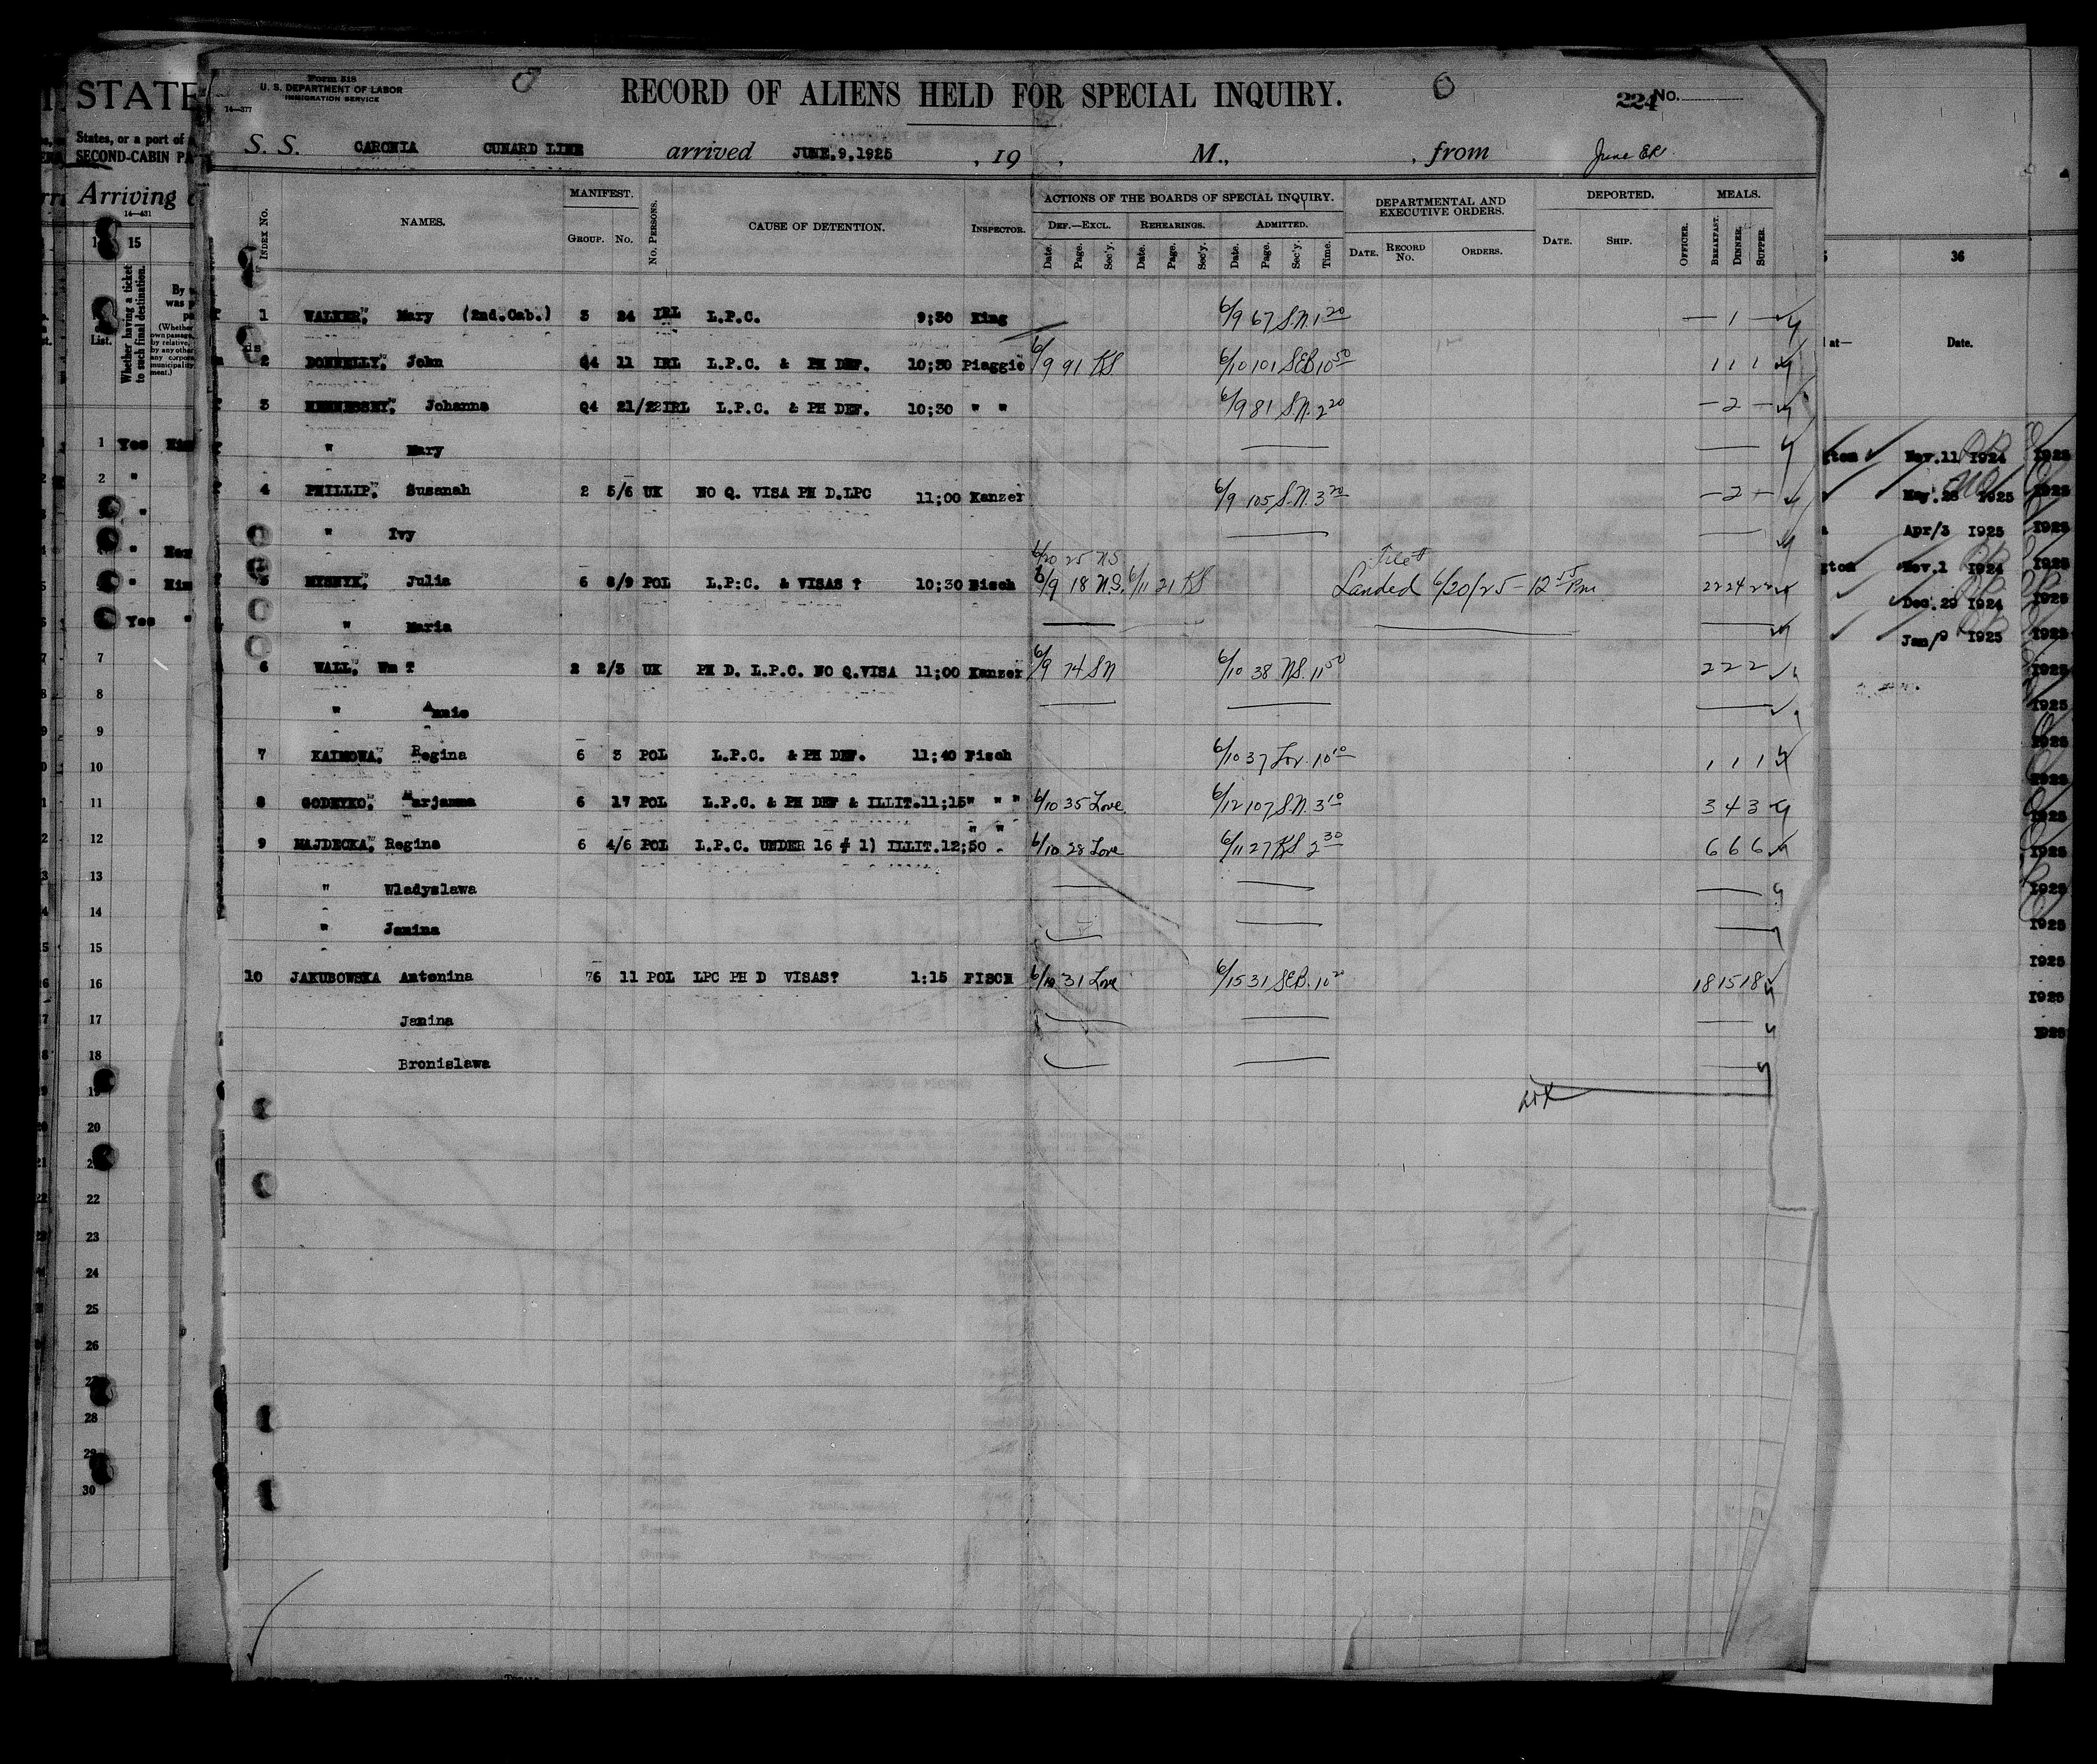 Form 518
U. S. DEPARTMENT OF LABOR
IMMIGRATION SERVICE
14—377
RECORD OF ALIENS HELD FOR SPECIAL INQUIRY.
224 No.
S. S. CARONIA CUNARD LINE arrived JUNE,9,1925 , 19 , M., , from
INDEX No. NAMES. MANIFEST. GROUP. No. No. PERSONS. CAUSE OF DETENTION. INSPECTOR. ACTIONS OF THE BOARDS OF SPECIAL INQUIRY. DEPARTMENTAL AND EXECUTIVE ORDERS. DEPORTED. MEALS.
DEF.—EXCL. REHEARINGS. ADMITTED.
Date. Page. Sec'y. Date. Page. Sec'y. Date. Page. Sec'y. Time. DATE. RECORD No. ORDERS. DATE. SHIP. OFFICER. BREAKFAST. DINNER. SUPPER.
1 WALKER, Mary (2nd.Cab.) 3 24 IRL L.P.C. 9;30 King 6/9 67 S.N. 1 20 — 1 —
2 DONNELLY, John Q4 11 IRL L.P.C. & PH DEF. 10;30 Piaggio 6/9 91 KS 6/10 101 SEB 10 50 1 1 1
3 HENNESSEY, Johanna Q4 21/22 IRL L.P.C. & PH DEF. 10;30 " " 6/9 81 S.N. 2 20 — 2 —
" Mary
4 PHILLIP, Susanah 2 5/6 UK NO Q. VISA PH D.LPC 11;00 Kanzer 6/9 105 S.N. 3 20 — 2 —
" Ivy
6/20 25 N.S. File #
5 MYSNYK, Julia 6 8/9 POL L.P.C. & VISAS ? 10;30 Fisch 6/9 18 N.S. 6/11 21 KS Landed 6/20/25 - 12 55 Pm 22 24 22
" Maria
6 WALL, Wm ? 2 2/3 UK PH D. L.P.C. NO Q.VISA 11;00 Kanzer 6/9 74 SN 6/10 38 N.S. 11 50 2 2 2
" Annie
7 KAIMOWA, Regina 6 3 POL L.P.C. & PH DEF. 11;40 Fisch 6/10 37 Lov. 10 10 1 1 1
8 GODEYKO, Marjanna 6 17 POL L.P.C. & PH DEF & ILLIT. 11;15 " " " 6/10 35 Love 6/12 107 S.N. 3 10 3 4 3
9 MAJDECKA, Regina 6 4/6 POL L.P.C. UNDER 16 # 1) ILLIT. 12;50 " " 6/10 28 Love 6/11 27 KS 2 30 6 6 6
" Wladyslawa
" Janina
10 JAKUBOWSKA Antonina 76 11 POL LPC PH D VISAS? 1:15 FISCH 6/10 31 Love 6/15 31 SEB. 10 20 18 15 18
Janina
Bronislawa
STATE
States, or a port of
SECOND-CABIN PA
Arriving
14—431
15
Whether having a ticket to such final destination.
List.
1 Yes
2 "
"
"
"
Yes "
7
8
9
10
11
12
13
14
15
16
17
18
19
20
22
23
24
25
26
28
29
30
36
at— Date.
Nov.11 1924 1925
May.25 1925 1925
Apr/3 1925 1925
Nov.1 1924 1925
Dec.29 1924 1925
Jan/9 1925 1925
1925
1925
1925
1925
1925
1925
1925
1925
1925
1925
1925